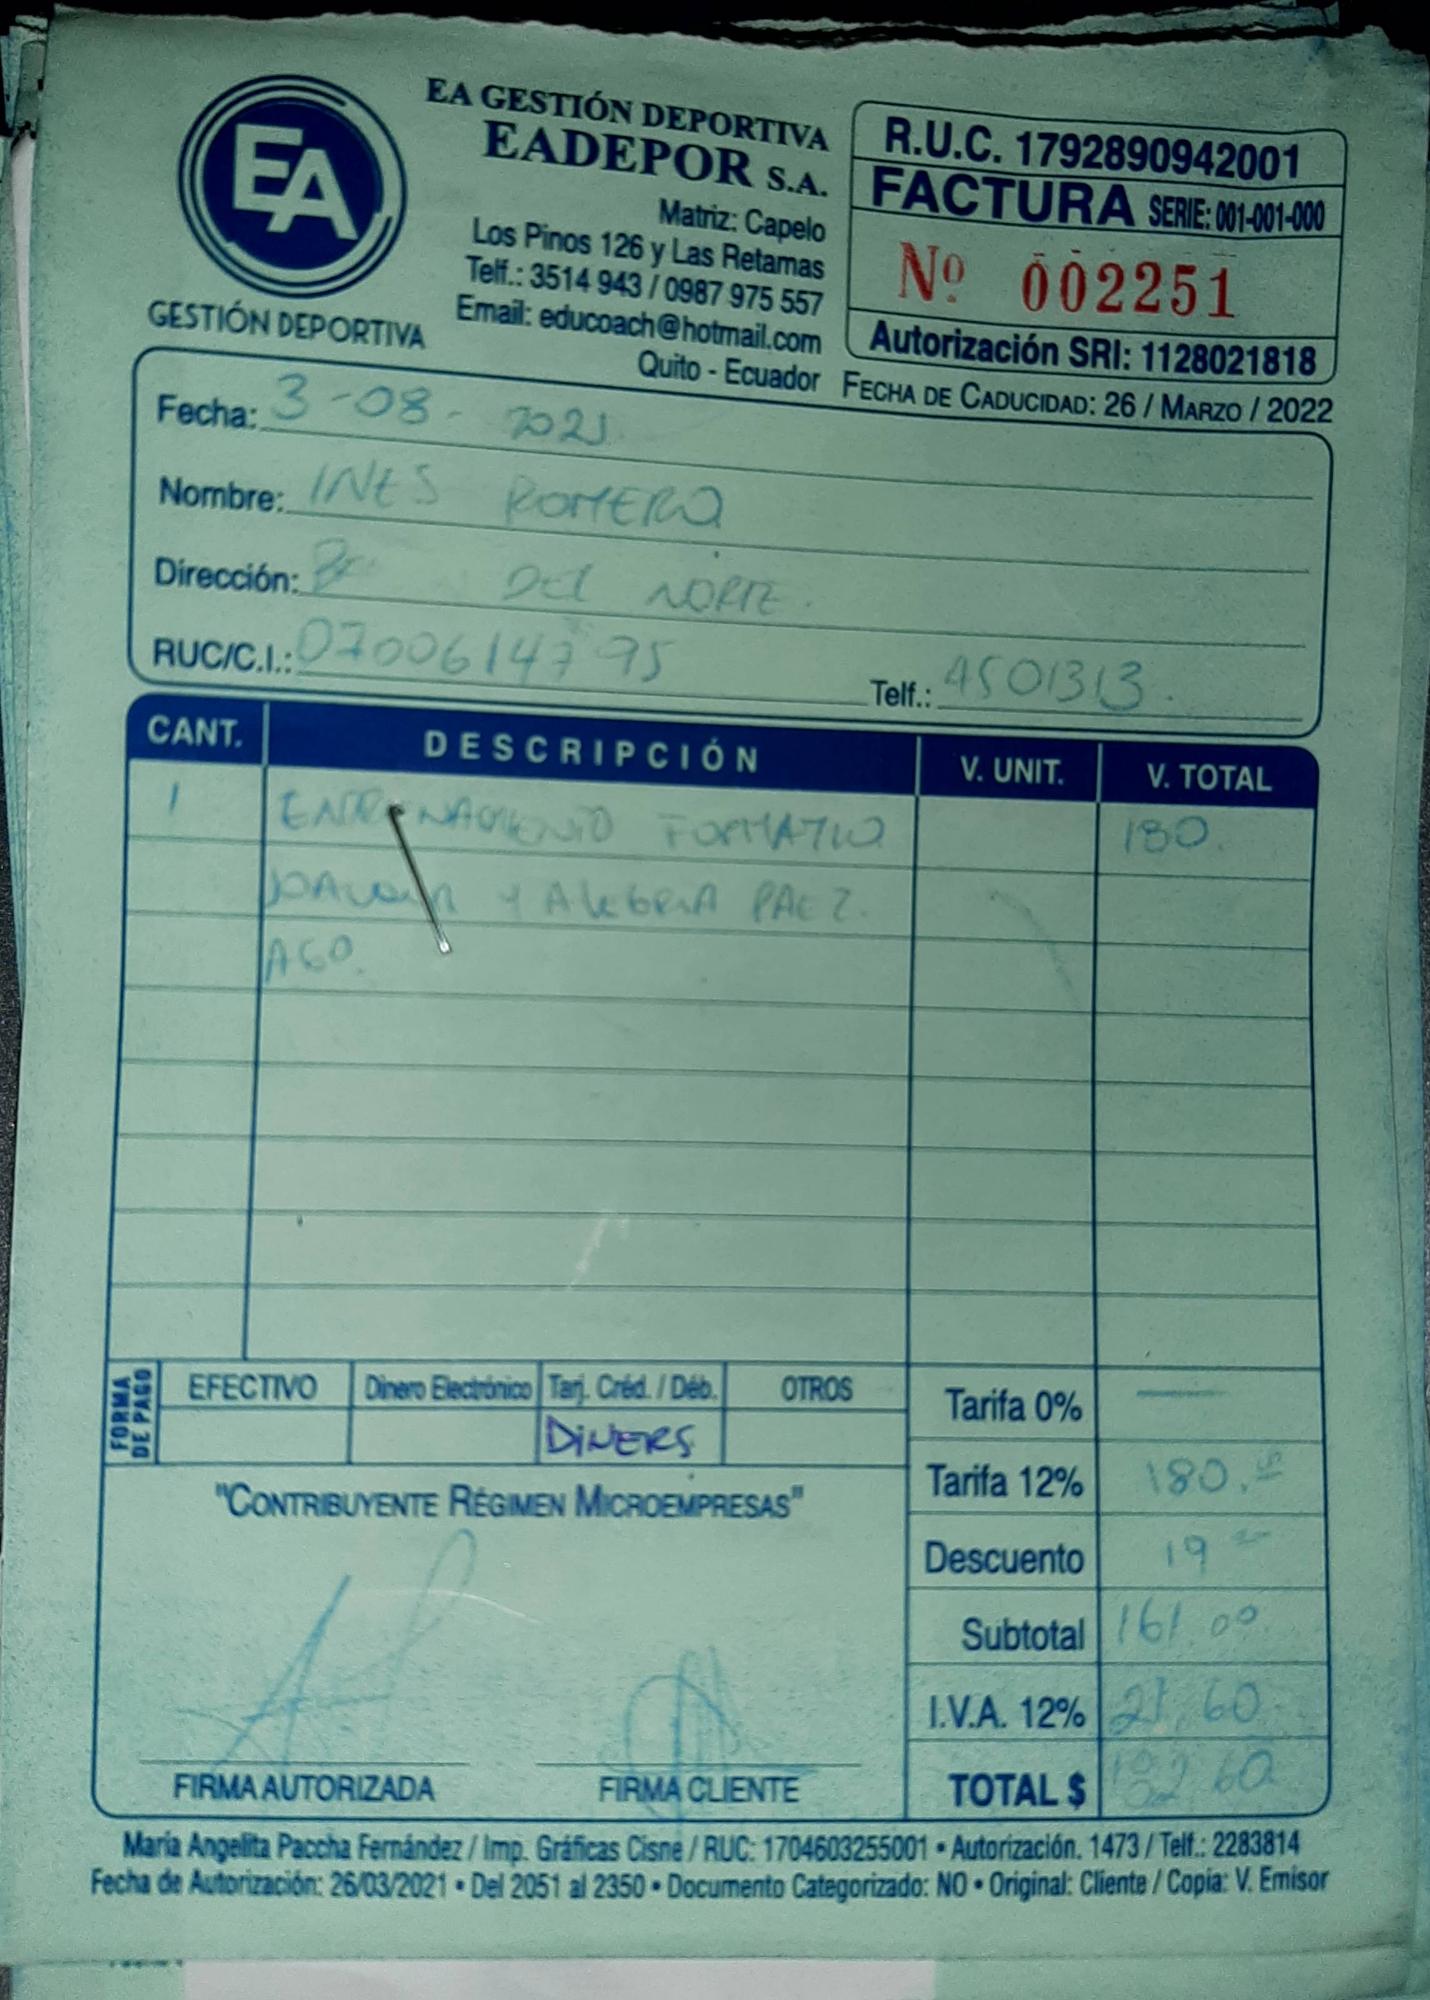 EA
GESTIÓN DEPORTIVA
EA GESTIÓN DEPORTIVA
EADEPOR S.A.
Matriz: Capelo
Los Pinos 126 y Las Retamas
Telf.: 3514 943 / 0987 975 557
Email: educoach@hotmail.com
Quito - Ecuador
R.U.C. 1792890942001
FACTURA SERIE: 001-001-000
Nº 002251
Autorización SRI: 1128021818
FECHA DE CADUCIDAD: 26 / MARZO / 2022
Fecha: 3-08-2021
Nombre: INES ROMERO
Dirección: DEL NORTE.
RUC/C.I.: 0700614795 Telf.: 4501313.
CANT. DESCRIPCIÓN V. UNIT. V. TOTAL
1 ENTRENAMIENTO FORMATIVO 180.
Y ALEGRIA PAEZ.
AGO.
FORMA DE PAGO
EFECTIVO Dinero Electrónico Tarj. Créd. / Déb. OTROS
DINERS
Tarifa 0% —
Tarifa 12% 180.
Descuento 19
Subtotal 161.00
I.V.A. 12% 21.60
TOTAL $ 182.60
"CONTRIBUYENTE RÉGIMEN MICROEMPRESAS"
FIRMA AUTORIZADA FIRMA CLIENTE
María Angelita Paccha Fernández / Imp. Gráficas Cisne / RUC: 1704603255001 • Autorización. 1473 / Telf.: 2283814
Fecha de Autorización: 26/03/2021 • Del 2051 al 2350 • Documento Categorizado: NO • Original: Cliente / Copia: V. Emisor